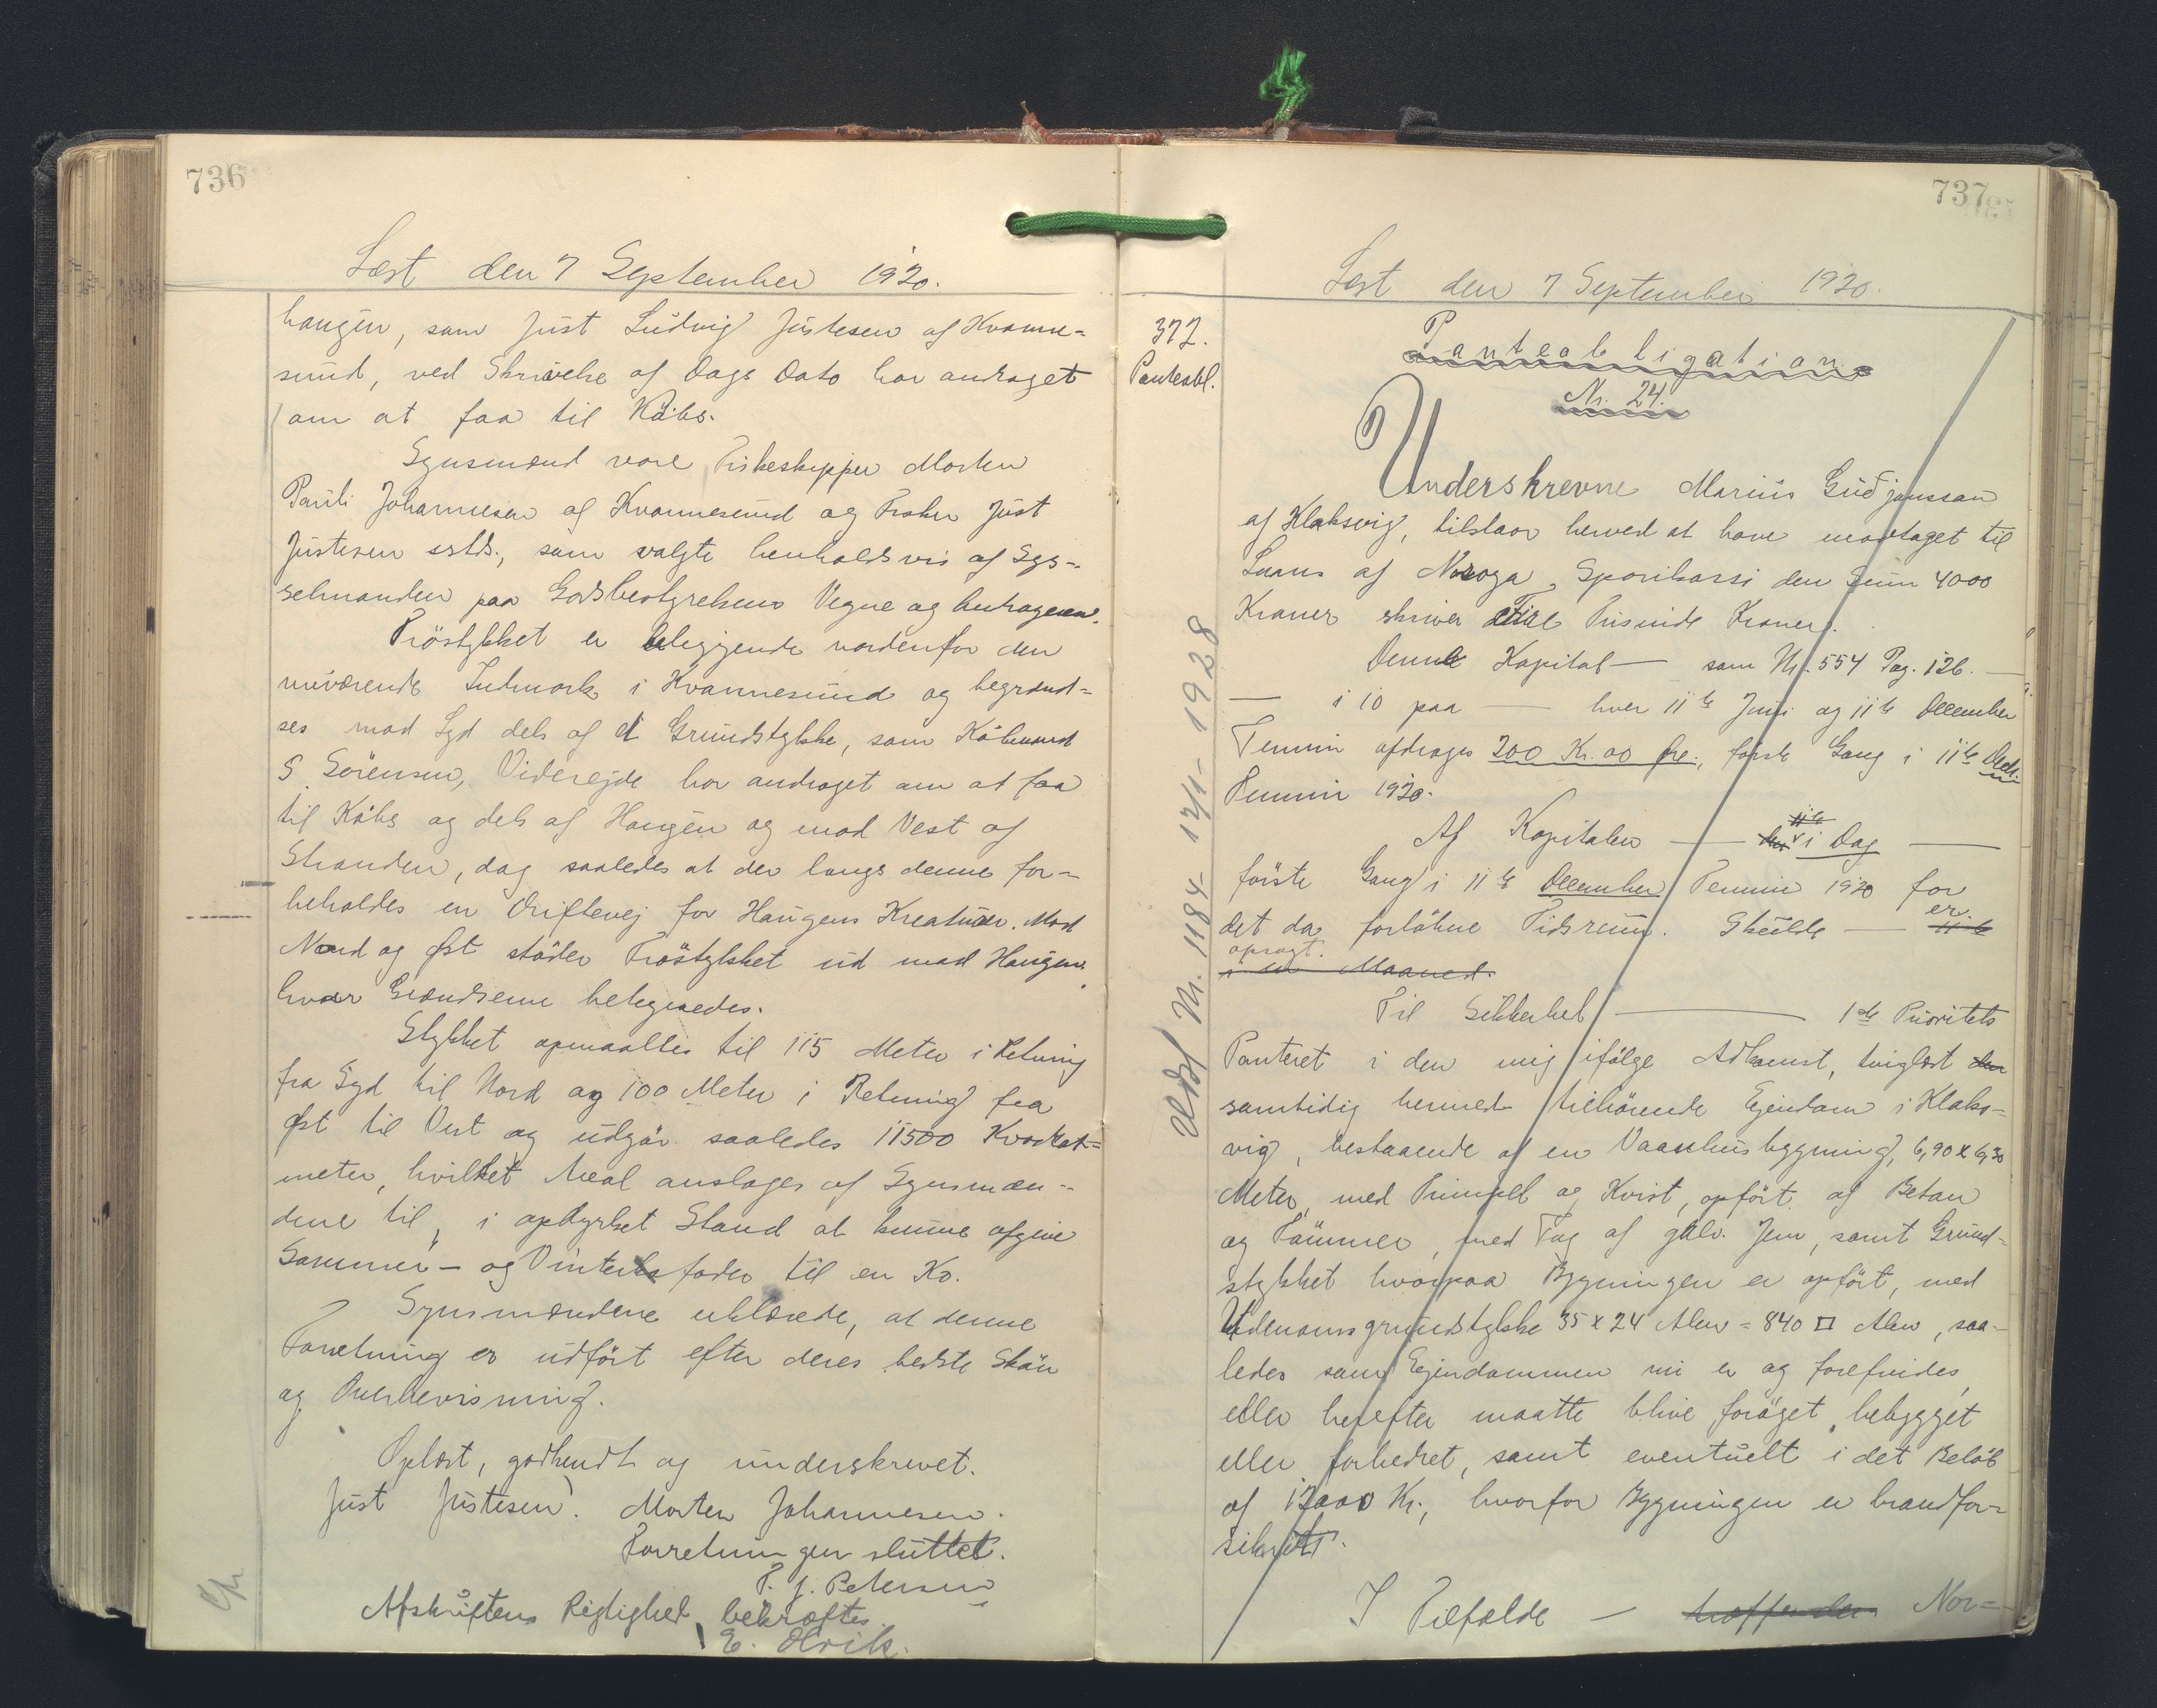 736
Læst den 7 September 1920.
haugin, som Just Ludvig Justesen af Kvanne=
sund, ved Skrivelse af Dags Dato har andraget
om at faa til Købs.
Synsmænd vare Fiskeskipper Morten
Pauli Johannesen af Kvannesund og Fisker Just
Justesen sstds., som valgte henholdsvis af Sys-
selmanden paa Godsbestyrelsens Vegne og Andrageren.
Trøstykket er beliggende nordenfor den
nuværende Indmark i Kvannesund og begrænd=
ses mod Syd dels af et Grundstykke, som Købmand
S. Sörensen, Viderejde har andraget om at faa
til Købs og dels af Haugen og mod Vest af
Stranden, dog saaledes at der langs denne for-
beholdes en Driftevej for Haugens Kreaturer. Mod
Nord og Øst støder Trøstykket ud mod Haugen,
hvor Grændserne betegnedes.
Stykket opmaaltes til 115 Meter i Retning
fra Syd til Nord og 100 Meter i Retning fra
Øst til Vest og udgør saaledes 11500 Kvadrat=
meter, hvilket Areal ansloges af Synsmæn-
dene til, i opdyrket Stand at kunne afgive
Sommer- og Vinterfoder til en Ko.
Synsmændene erklærede, at denne
Forretning er udført efter deres bedste Skøn
og Overbevisning.
Oplæst, godkendt og underskrevet.
Just Justesen. Morten Johannesen.
Forretningen sluttet.
P. J. Petersen
Afskriftens Rigtighed bekræftes
E. Olrik.
737
Læst den 7 September 1920.
372.
Panteobl.
Panteobligation
Nr. 24.
Underskrevne Marius Gudjonsson
af Klaksvig, tilstaar herved at have modtaget til
Laans af Noroya Sparikassi den Sum 4000
Kroner skriver Fire Tusinde Kroner.
Denne Kapital — som Nr. 554 Pag. 126. —
— i 10 paa — hver 11te Juni og 11te December
Termin afdrages 200 Kr. 00 Øre, første Gang i 11te Decbr.
Termin 1920.
Af Kapitalen — 11te
den i Dag —
første Gang i 11te December Termin 1920 for
det da forløbne Tidsrum. Skulde — er
11te
opsagt.
i en Maaned.
Til Sikkerhed — 1ste Prioritets
Panteret i den mig ifølge Adkomst, tinglæst den
samtidig hermed tilhørende Ejendom i Klaks-
vig, bestaaende af en Vaaningshusbygning, 6,90 x 6,30
Meter, med Trempel og Kvist, opført af Beton
og Tømmer, med Tag af galv. Jern, samt Grund-
stykket hvorpaa Bygningen er opført, med
Udenomsgrundstykke 35 x 24 Alen = 840 □ Alen, saa-
ledes som Ejendommen nu er og forefindes,
eller herefter maatte blive forøget, bebygget
eller forbedret, samt eventuelt i det Beløb
af 12000 Kr., hvorfor Bygningen er brandfor-
sikret.
I Tilfælde — træffer den Nor=
Aflyst Nr. 1184 - 17/1 - 1928